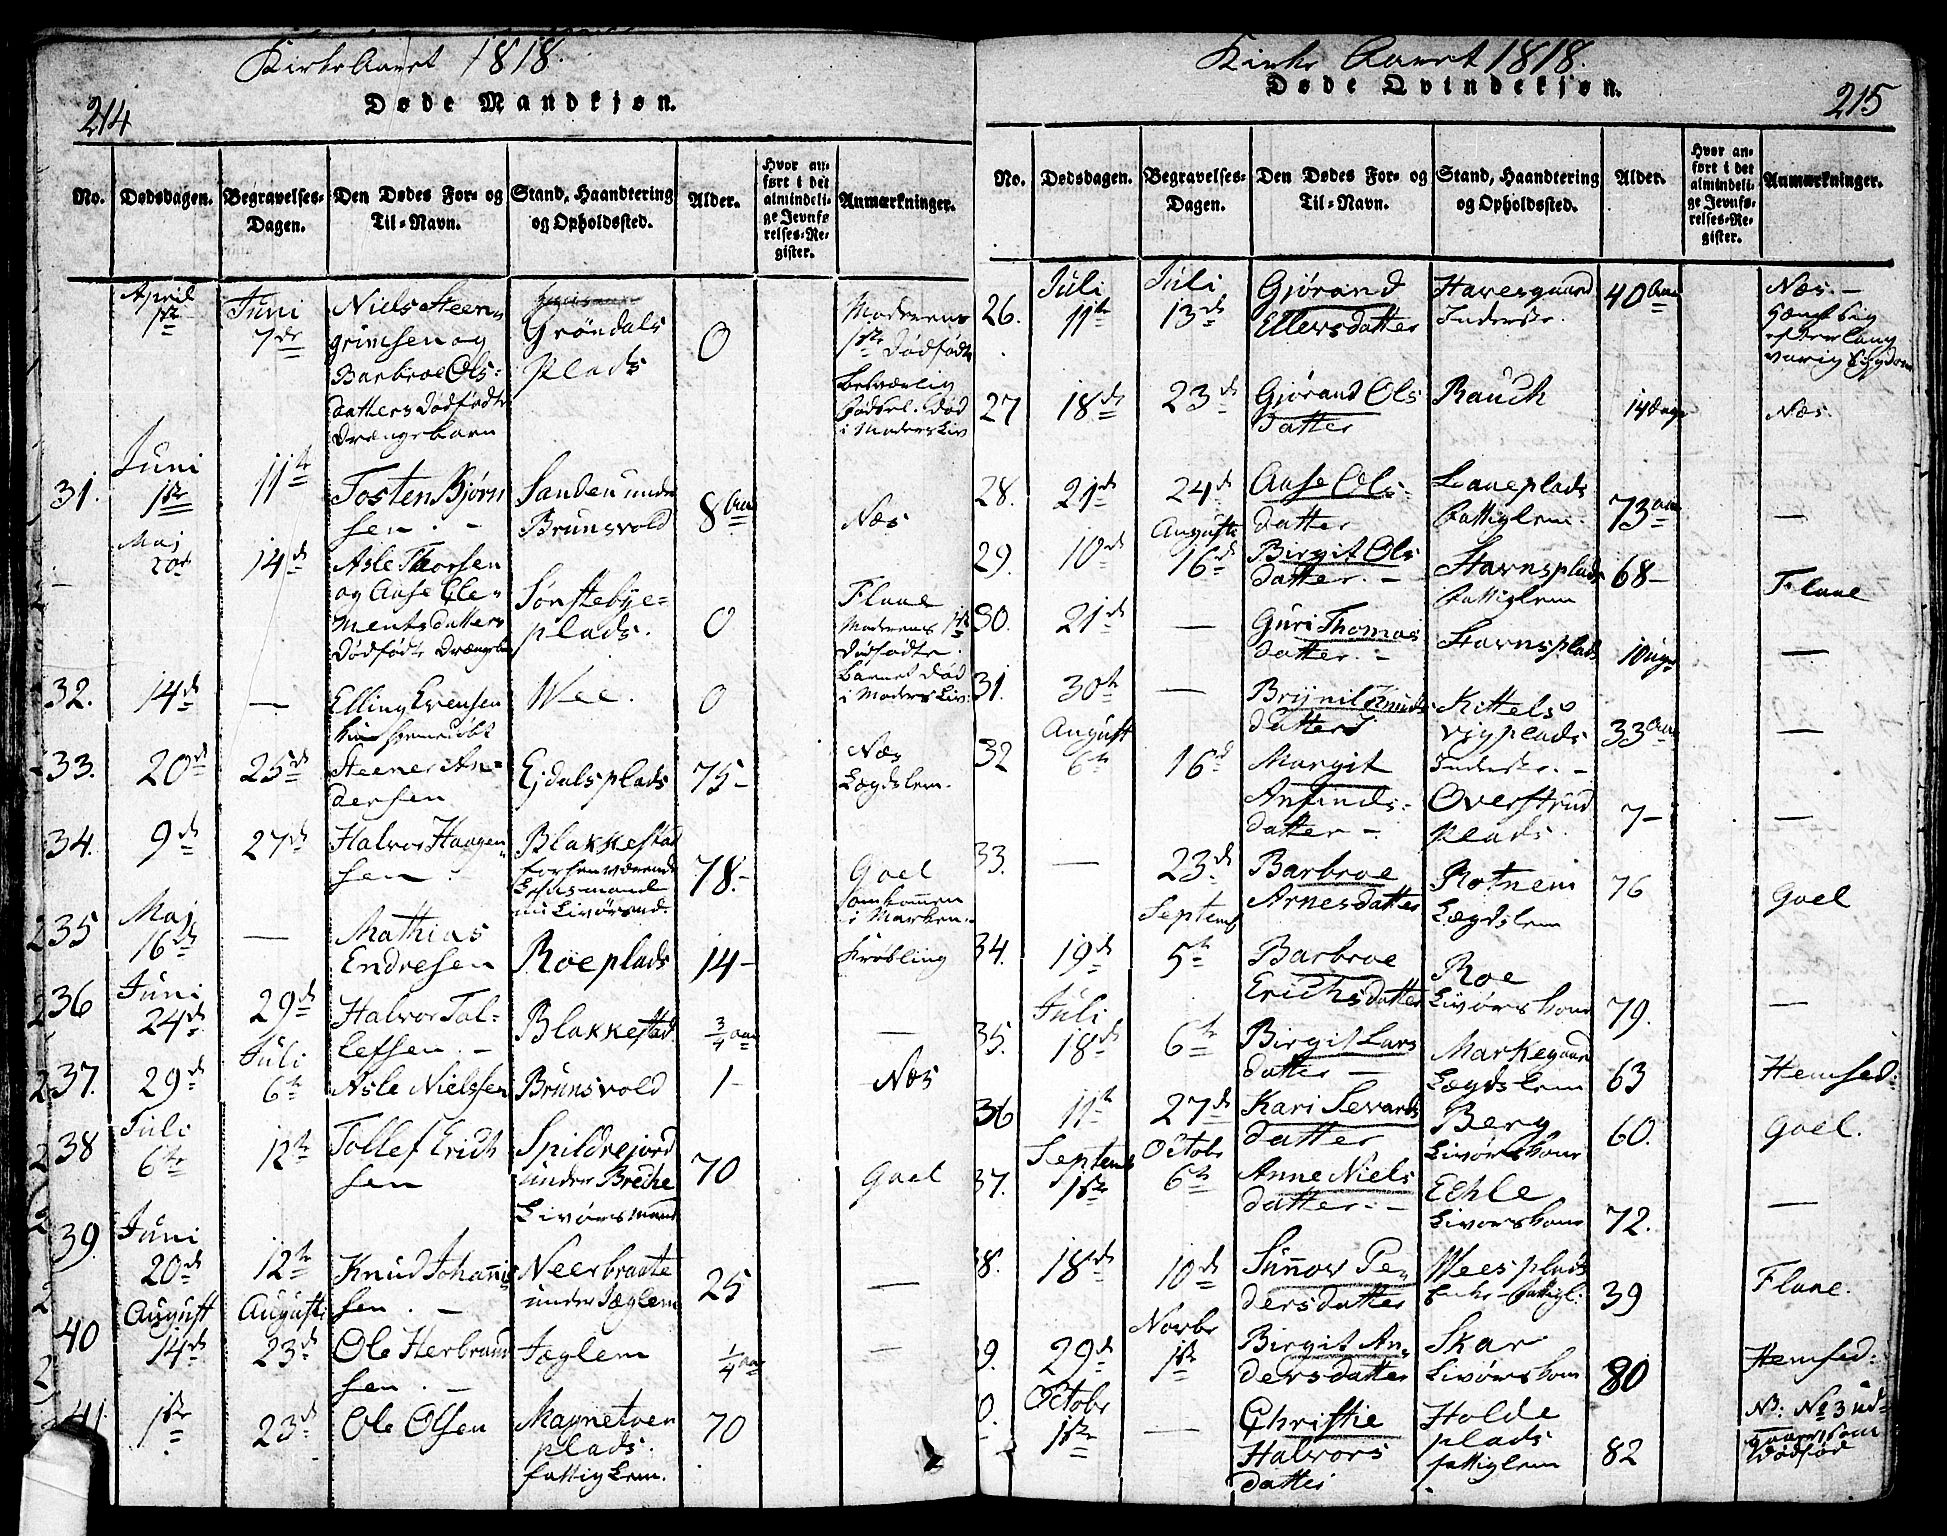 Kirke Aaret 1818.
214
Døde Mandkjøn.
No.
Dødsdagen.
Begravelses-
Dagen.
Den Dødes For- og
Til-Navn.
Stand, Haandtering
og Opholdssted.
Alder.
Hvor an-
ført i det
almindeli-
ge Jevnfø-
relses-Re-
gister.
Anmærkninger.
April
1ste
Juni
7de
Niels Steen-
grimsen og
Barbroe Ols-
datters dødfødte
Drængebarn
Gröndals
Plads
0
Moderens
1ste Dødfødte
besværlig
Fødsel. Død
i Moders Liv
31.
Juni
1ste
11te
Tosten Bjørn
sen. -
Sanden under
Brunsvold
8 Aar
Næs
Maj
20de
14de
Asle Thorsen
og Aase Cle-
mentsdatters
Dødfødte Drængebarn
Sønstebye-
plads.
0
Flaae
Moderens 1ste
Dødfødte.
Barnet Død
i Moders Liv.
32.
14de
—
Elling Evensen
hiemmedøbt
Wee.
0
33.
20de
25de
Steener An-
dersen
Ejdalsplads
75-
Næs
Lægdslem.
34.
9de
27de
Halvor Haagen-
sen.
Blakkestad
forhenværende
Lensmand
nu Livørsmd.
78.-
Goel
omkommen
i Marken.
35
Maj
16de
—
Mathias
Endresen
Roeplads
14-
Krøbling
36
Juni
24de
29de
Halvor Tol-
lefsen. -
Blakkestad
3/4 Aar
—
37.
29de
Juli
6te
Asle Nielssen
Brunsvold
1-
Næs
38
Juli
6te
12te
Tollef Erich
sen
Spildrejord
under Breche
Livørsmand
70
Goel
39.
Juni
20de
12te
Knud Johannis
sen. -
Neerbraate
under Jæglem
25
—
40
August
14de
August
23de
Ole Herbrand
sen. -
Jæglem
1/4 Aar
—
41.
1ste
23de
Ole Olsen
Magnetven
plads.
fattig Lem.
70
Kirke Aaret 1818.
Døde Qvindekjøn.
215
No.
Dødsdagen.
Begravelses-
Dagen.
Den Dødes For- og
Til-Navn.
Stand, Haandtering
og Opholdssted.
Alder.
Hvor an-
ført i det
almindeli-
ge Jevnfø-
relses-Re-
gister.
Anmærkninger.
26.
Juli
11te
Juli
13de
Gjørand
Ellersdatter
Havesgaard
Inderste.
40 Aar
Næs. -
Hængt sig
efter lang
varig Sygdom
27
18de
23de
Gjørand Ols
datter
Rauch
14 dage
Næs.
28.
21de
24de
Aase Ols-
datter
Laaeplads
Fattiglem.
73 aar
—
29.
10de
Augusti
16de
Birgit Ols
datter. -
Stavnsplads
Fattiglem
68-
Flaae
30.
21de
—
Guri Thomas
datter. -
Stavnsplads
10 uger
—
31.
30te
—
Brynil Knuds
datter
Kittels
vigplads
Inderste. -
33 Aar
—
32
August
6te
16d
Margit
Anfinds-
datter -
Overstrud
Plads.
7-
—
33.
—
23de
Barbroe
Arnesdatter
Rotnem
Lægdslem
76
Goel
34.
19de
Septemb
5te
Barbroe
Erichsdatter
Roe
Livørskone
79.
—
35.
Juli
18de
6te
Birgit Lars
datter -
Markegaard
Lægdslem
63
Hemsed.
36
11te
27de
Kari Sevards
datter
Berg
Livørskone
60.
Goel.
37.
Septemb
1ste
Octobr
6te
Anne Niels
datter. -
Echle
Livorskone
72.
—
38.
18de
10de
Sunnov Pe-
dersdatter
Weesplads
Enke - fattigl:
39
Flaae.
39.
29de
Novbr
1ste
Birgit An-
dersdatter
Skar
Livørskone
80
Hemsed:
0.
Octobr
1ste
—
Christie
Halvors
datter
Holde
plads
fattiglem
82
NB: No 3 ud-
gaaer som
Dødfød